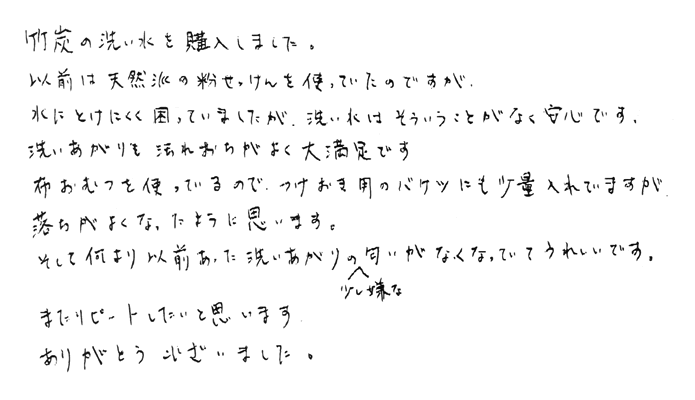 竹炭の洗い水を購入しました。
以前は天然派の粉せっけんを使っていたのですが、
水にとけにくく困っていましたが、洗い水はそういうことがなく安心です。
洗いあがりも汚れおちがよく大満足です
布おむつを使っているので、つけおき用のバケツにも少量入れていますが
落ちがよくなったように思います。
そして何より以前あった洗いあがりの匂いがなくなっていてうれしいです。
少し嫌な
またリピートしたいと思います
ありがとうございました。